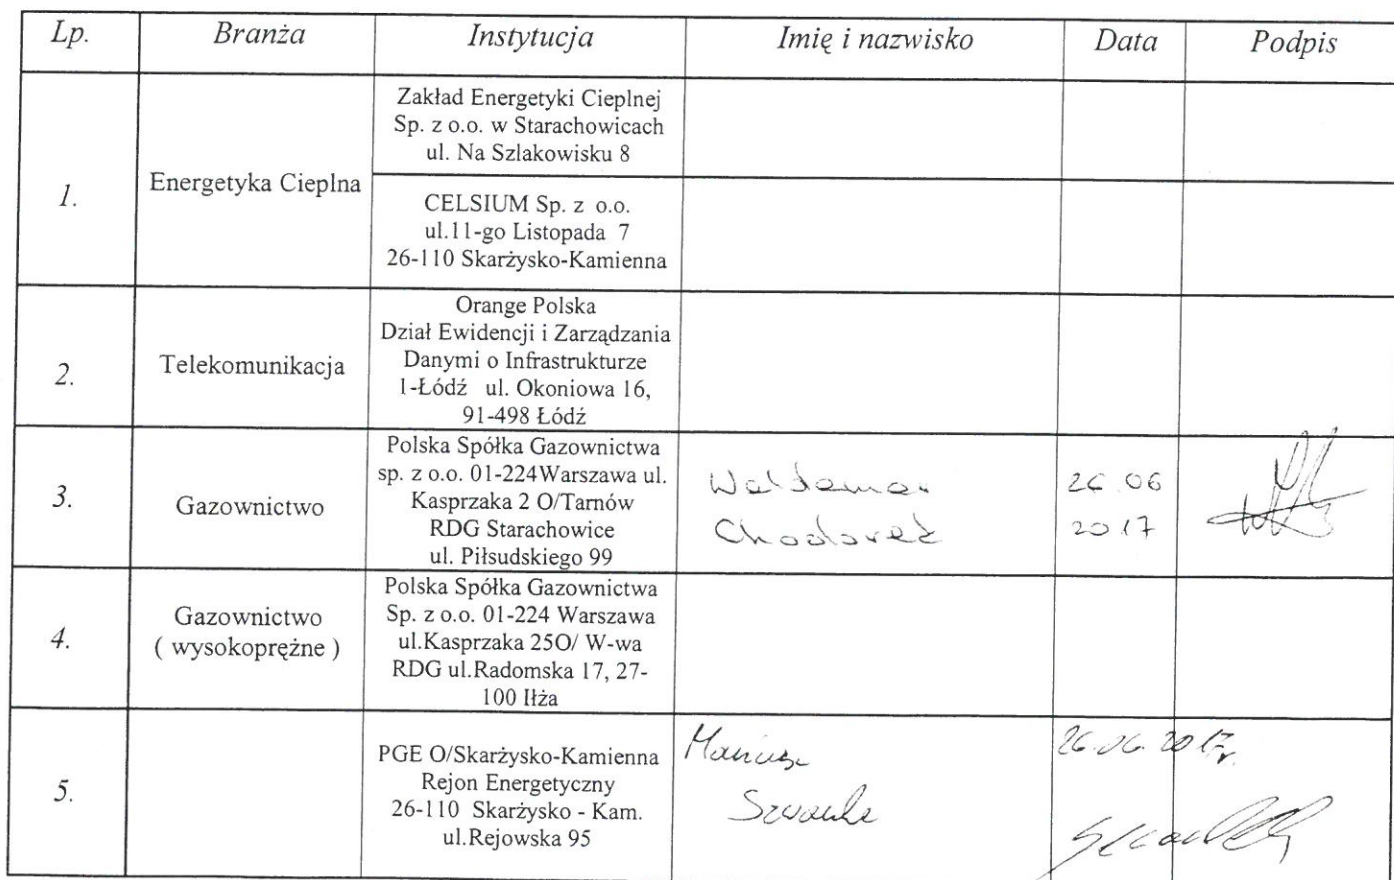 Lp. Branża Instytucja Imię i nazwisko Data Podpis
1.
Energetyka Cieplna
Zakład Energetyki Cieplnej
Sp. z o.o. w Starachowicach
ul. Na Szlakowisku 8
CELSIUM Sp. z o.o.
ul.11-go Listopada 7
26-110 Skarżysko-Kamienna
2.
Telekomunikacja
Orange Polska
Dział Ewidencji i Zarządzania
Danymi o Infrastrukturze
1-Łódź ul. Okoniowa 16,
91-498 Łódź
3.
Gazownictwo
Polska Spółka Gazownictwa
sp. z o.o. 01-224Warszawa ul.
Kasprzaka 2 O/Tarnów
RDG Starachowice
ul. Piłsudskiego 99
Waldemar
Chodorek
26 06
2017
4.
Gazownictwo
( wysokoprężne )
Polska Spółka Gazownictwa
Sp. z o.o. 01-224 Warszawa
ul.Kasprzaka 25O/ W-wa
RDG ul.Radomska 17, 27-
100 Iłża
5.
PGE O/Skarżysko-Kamienna
Rejon Energetyczny
26-110 Skarżysko - Kam.
ul.Rejowska 95
Mariusz
26.06.2017r.